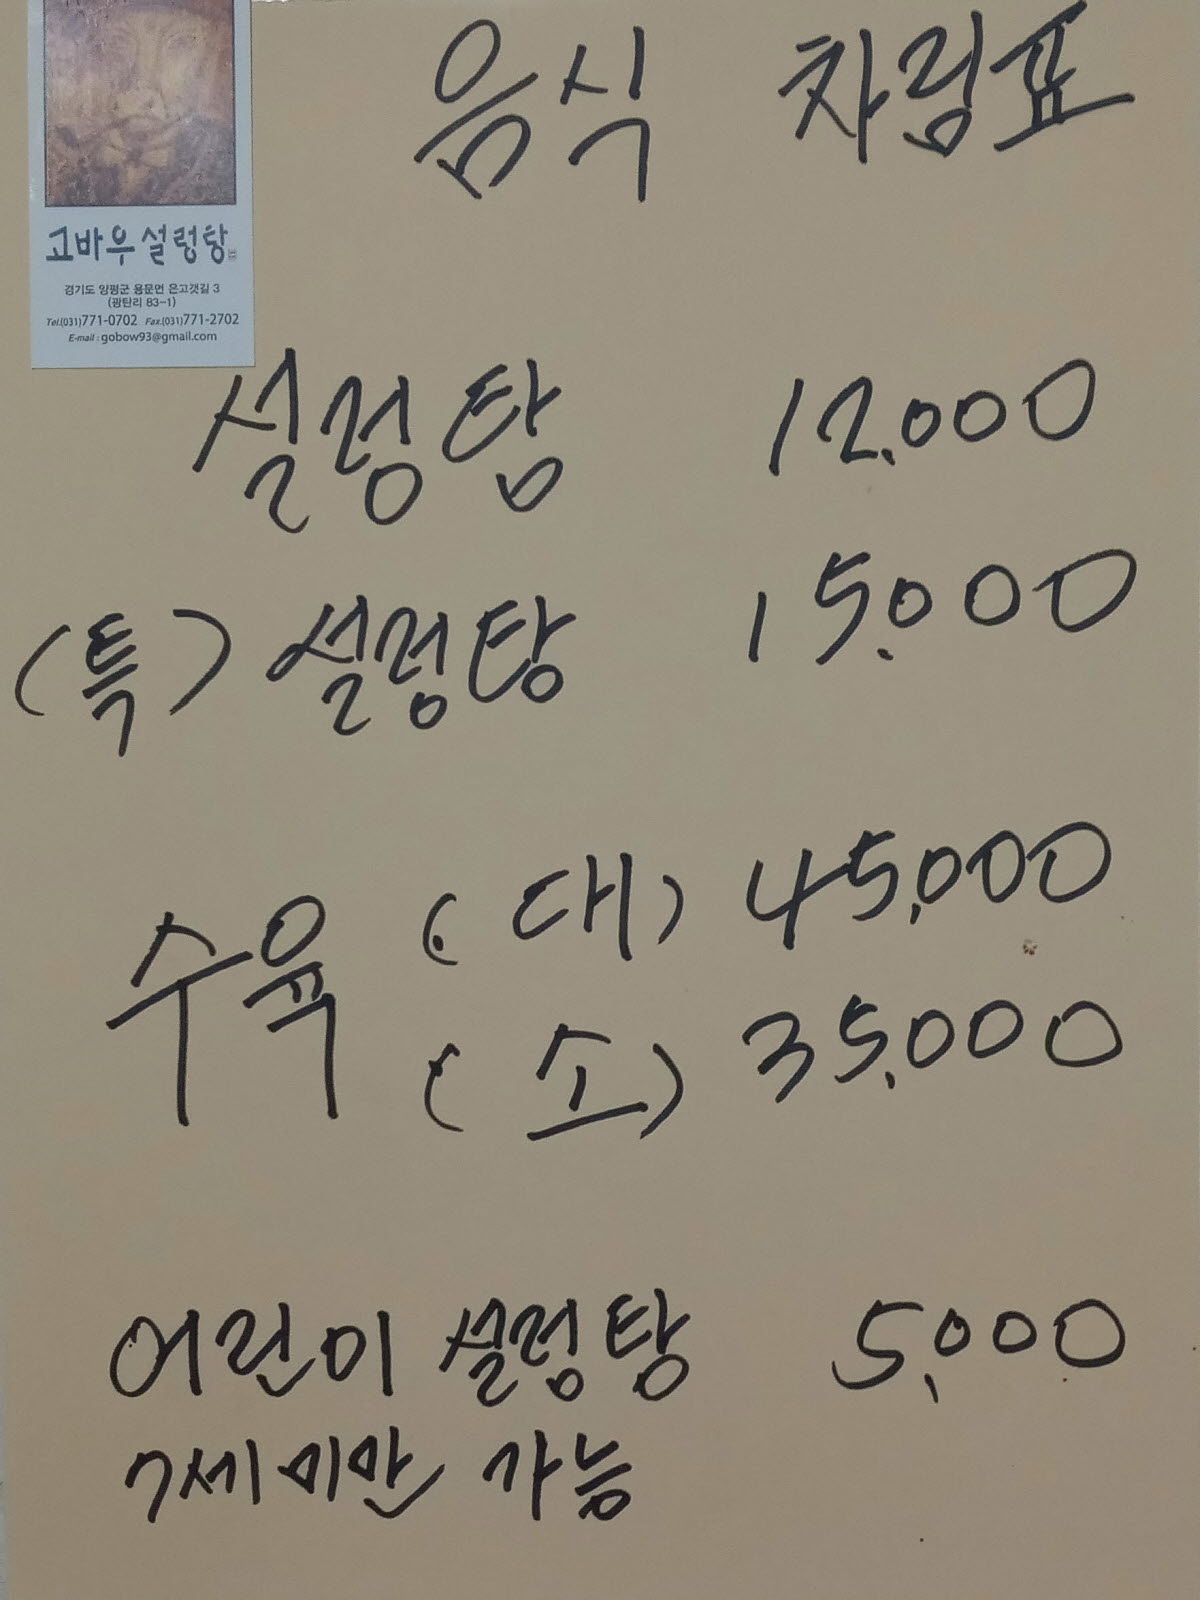 음식 차림표
고바우 설렁탕
경기도 양평군 용문면 은고갯길 3
(광탄리 83-1)
Tel.(031)771-0702 Fax.(031)771-2702
E-mail : gobow93@gmail.com
설렁탕 12,000
(특) 설렁탕 15,000
수육 (대) 45,000
(소) 35,000
어린이 설렁탕 5,000
7세 미만 가능